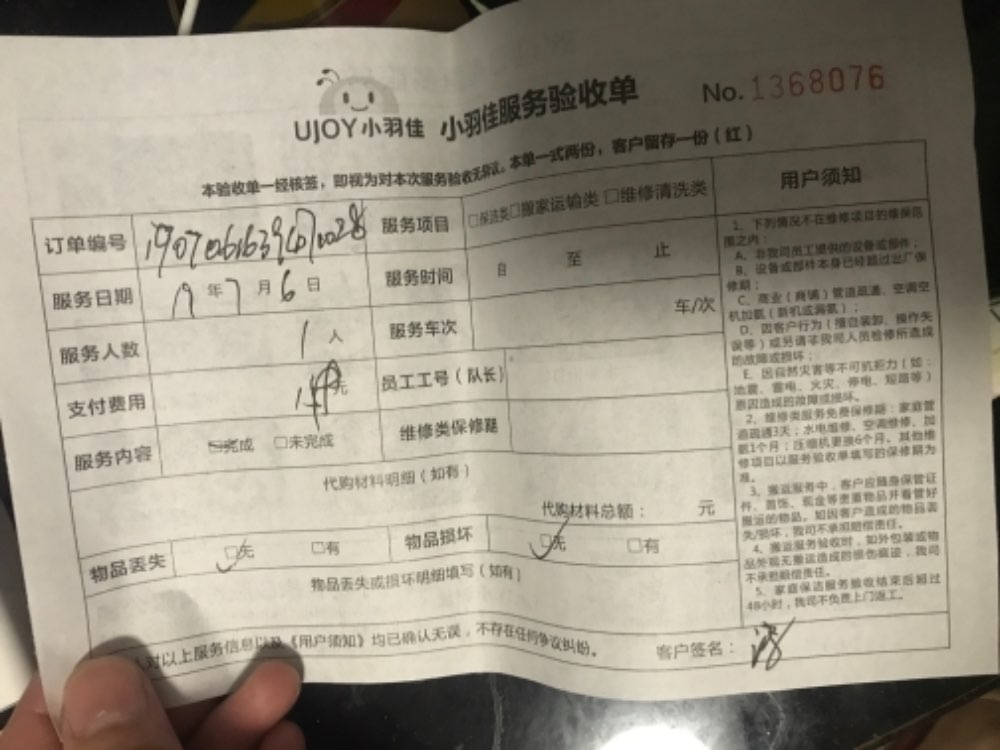 UJOY小羽佳 小羽佳服务验收单 No.1368076
本验收单一经核签，即视为对本次服务验收无异议。本单一式两份，客户留存一份（红）
订单编号 服务项目 □保洁类□搬家运输类 □维修清洗类
服务日期 19年7月6日 服务时间 自 至 止
服务人数 1人 服务车次 车/次
支付费用 元 员工工号（队长）
服务内容 □完成 □未完成 维修类保修期
代购材料明细（如有）
代购材料总额： 元
物品丢失 □无 □有 物品损坏 □无 □有
物品丢失或损坏明细填写（如有）
对以上服务信息以及《用户须知》均已确认无误，不存在任何争议纠纷。 客户签名：
用户须知
1、下列情况不在维修项目的维保范
围之内：
A、非我司员工提供的设备或部件；
B、设备或部件本身已经超过出厂保
修期；
C、商业（商铺）管道疏通、空调空
机加氨（新机或漏氨）；
D、因客户行为（擅自装卸、操作失
误等）或另请非我司人员检修所造成
的故障或损坏；
E、因自然灾害等不可机拒力（如：
地震、雷电、火灾、停电、短路等）
原因造成的故障或损坏。
2、维修类服务免费保修期：家庭管
道疏通3天；水电维修、空调维修、加
氨1个月；压缩机更换6个月。其他维
修项目以服务验收单填写的保修期为
准。
3、搬运服务中，客户应随身保管证
件、首饰、现金等贵重物品并看管好
搬运的物品。如因客户造成的物品丢
失/损坏，我司不承担赔偿责任。
4、搬运服务验收时，如外包装或物
品外观无搬运造成的损伤痕迹，我司
不承担赔偿责任。
5、家庭保洁服务验收结束后超过
48小时，我司不负责上门返工。